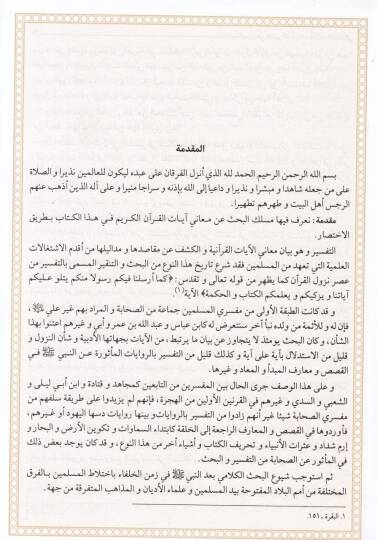 المقدمة
بسم الله الرحمن الرحيم الحمد لله الذي أنزل الفرقان على عبده ليكون للعالمين نذيرا و الصلاة
على من جعله شاهدا و مبشرا و نذيرا و داعيا إلى الله بإذنه و سراجا منيرا و على آله الذين أذهب عنهم
الرجس أهل البيت و طهرهم تطهيرا.
مقدمة: نعرف فيها مسلك البحث عن معاني آيات القرآن الكريم في هذا الكتاب بطريق
الاختصار.
التفسير و هو بيان معاني الآيات القرآنية و الكشف عن مقاصدها و مداليلها من أقدم الاشتغالات
العلمية التي تعهد من المسلمين فقد شرع تاريخ هذا النوع من البحث و التنقير المسمى بالتفسير من
عصر نزول القرآن كما يظهر من قوله تعالى و تقدس: ﴿كما أرسلنا فيكم رسولا منكم يتلو عليكم
آياتنا و يزكيكم و يعلمكم الكتاب و الحكمة﴾ الآية(١)
و قد كانت الطبقة الأولى من مفسري المسلمين جماعة من الصحابة و المراد بهم غير علي ،
فإن له و للأئمة من ولده نبأ آخر سنتعرض له كابن عباس و عبد الله بن عمر و أبي و غيرهم اعتنوا بهذا
الشأن، و كان البحث يومئذ لا يتجاوز عن بيان ما يرتبط، من الآيات بجهاتها الأدبية و شأن النزول و
قليل من الاستدلال بآية على آية و كذلك قليل من التفسير بالروايات المأثورة عن النبي ﷺ في
القصص و معارف المبدأ و المعاد و غيرها.
و على هذا الوصف جرى الحال بين المفسرين من التابعين كمجاهد و قتادة و ابن أبي ليلى و
الشعبي و السدي و غيرهم في القرنين الأولين من الهجرة، فإنهم لم يزيدوا على طريقة سلفهم من
مفسري الصحابة شيئا غير أنهم زادوا من التفسير بالروايات و بينها روايات دسها اليهود أو غيرهم،
فأوردوها في القصص و المعارف الراجعة إلى الخلقة كابتداء السماوات و تكوين الأرض و البحار و
إرم شداد و عثرات الأنبياء و تحريف الكتاب و أشياء أخر من هذا النوع، و قد كان يوجد بعض ذلك
في المأثور عن الصحابة من التفسير و البحث.
ثم استوجب شيوع البحث الكلامي بعد النبي ﷺ في زمن الخلفاء باختلاط المسلمين بالفرق
المختلفة من أمم البلاد المفتوحة بيد المسلمين و علماء الأديان و المذاهب المتفرقة من جهة.
١. البقرة ـ ١٥١.